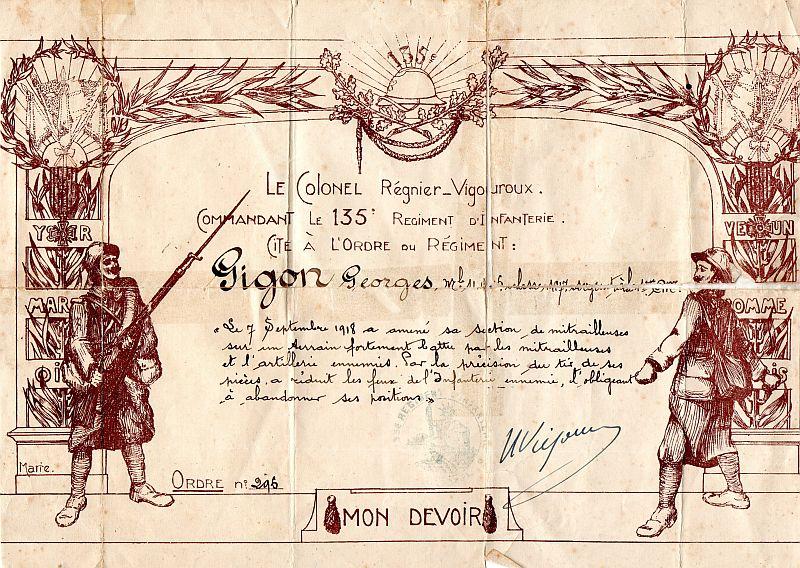 135e
LE COLONEL Régnier-Vigouroux.
COMMANDANT LE 135e REGIMENT D'INFANTERIE.
CITE A L'ORDRE DU RÉGIMENT:
Gigon Georges,
YSER
VERDUN
MAR
SOMME
« Le 7 Septembre 1918 a amené sa section de mitrailleuses
sur un terrain fortement battu par les mitrailleuses
et l'artillerie ennemies. Par la précision du tir de ses
pièces, a réduit les feux de l'Infanterie ennemie, l'obligeant
à abandonner ses positions »
Marre.
ORDRE n° 296
MON DEVOIR